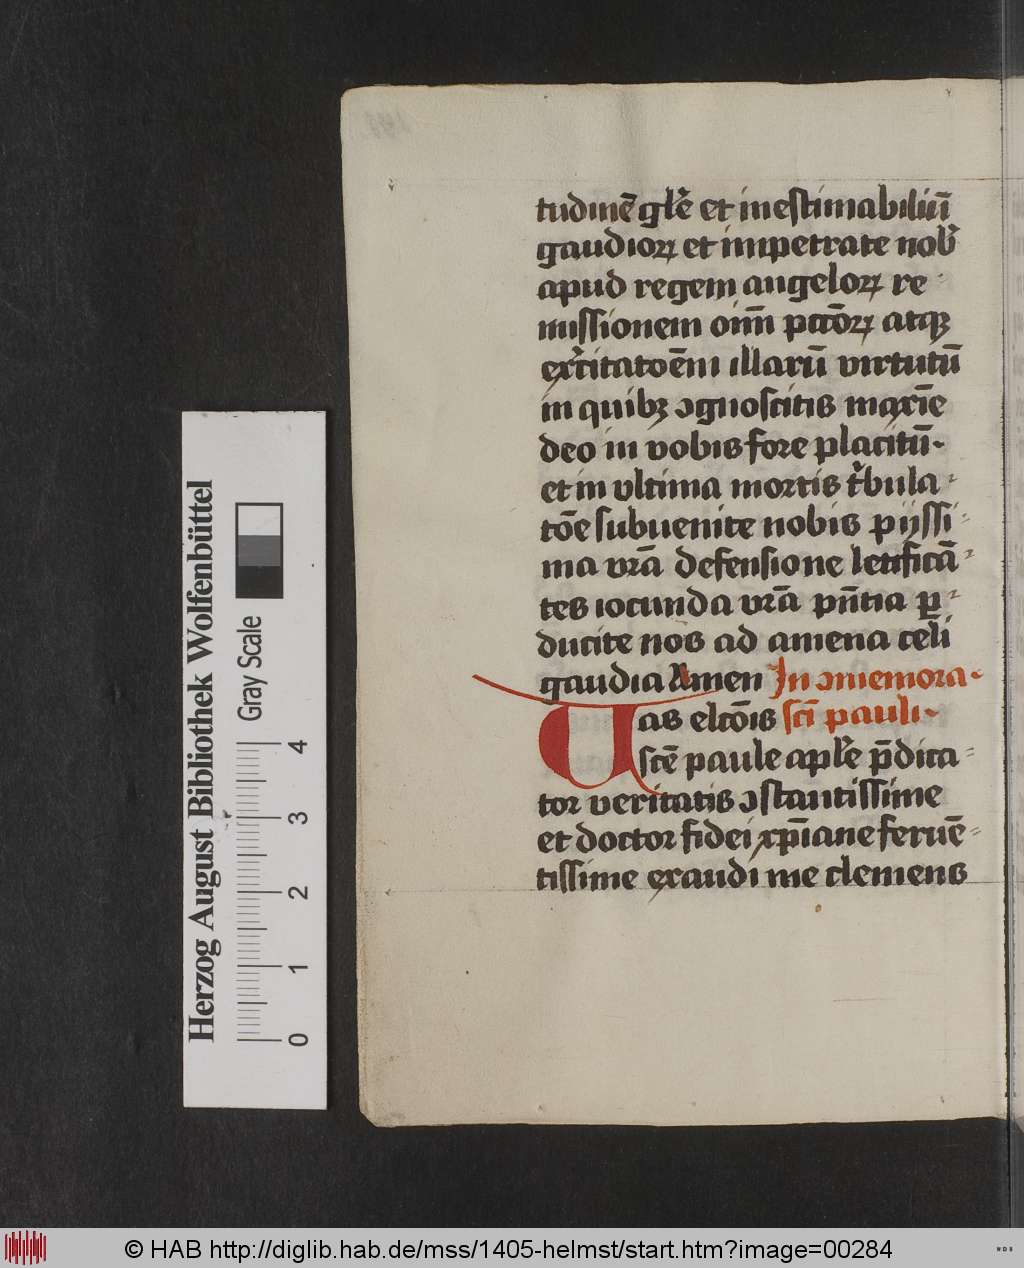 tudinē gl'e et inestimabiliū
gaudioꝝ et impetrate nob'
apud regem angeloꝝ re
missionem oīm pctōꝝ atqꝫ
ex'citatoēm illarū virtutū
in quibꝫ ꝯgnoscitis maxīe
deo in vobis fore placitū·
et in vltima mortis t'bula-
tōe subuenite nobis pijssi-
ma vrā defensione letificā-
tes iocunda vrā pn̄tia ꝑ-
ducite nos ad amena celi
gaudia Amen In ꝯmemora-
Uas elcōis sci pauli·
scē paule apl'e p̄dica-
tor veritatis ꝯstantissime
et doctor fidei xp̄iane feruē-
tissime exaudi me clemens
Herzog August Bibliothek Wolfenbüttel
Gray Scale
0 1 2 3 4
© HAB http://diglib.hab.de/mss/1405-helmst/start.htm?image=00284